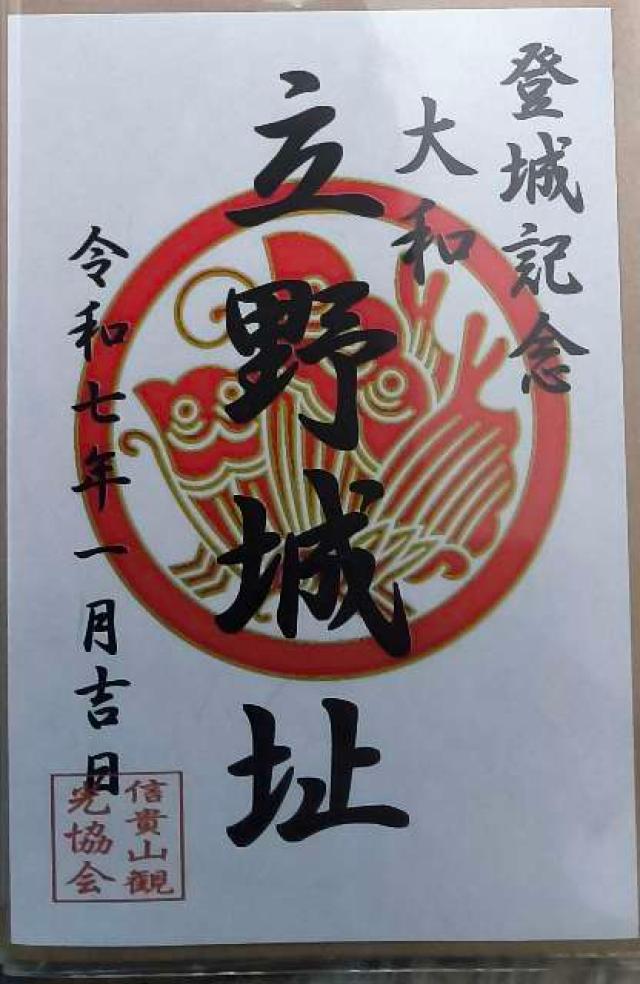 登城記念
大和
立野城址
令和七年一月吉日
信貴山観
光協会